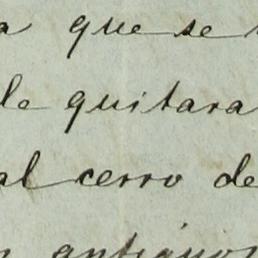 a que se
le quitara
al cerro de
antiguos